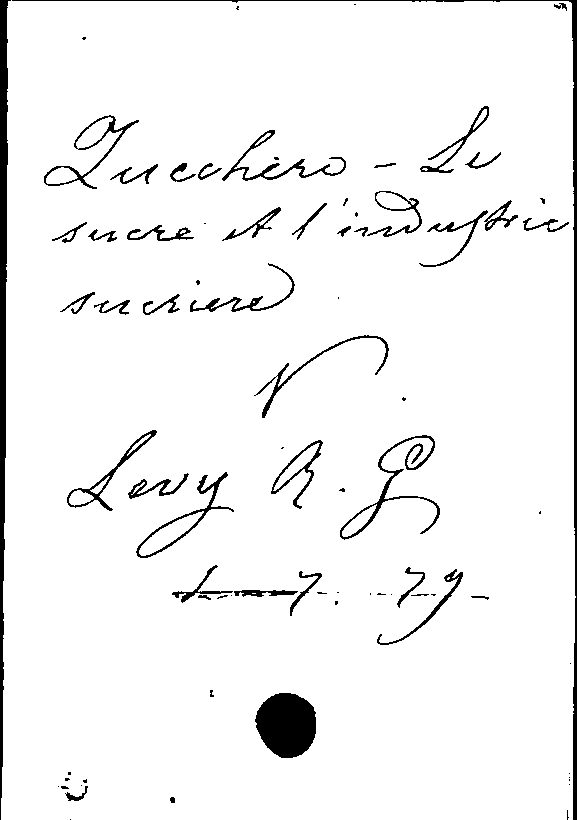 Zucchero - Le
sucre et l'industrie
sucriere
V.
Levy R. G
1-7. 79-